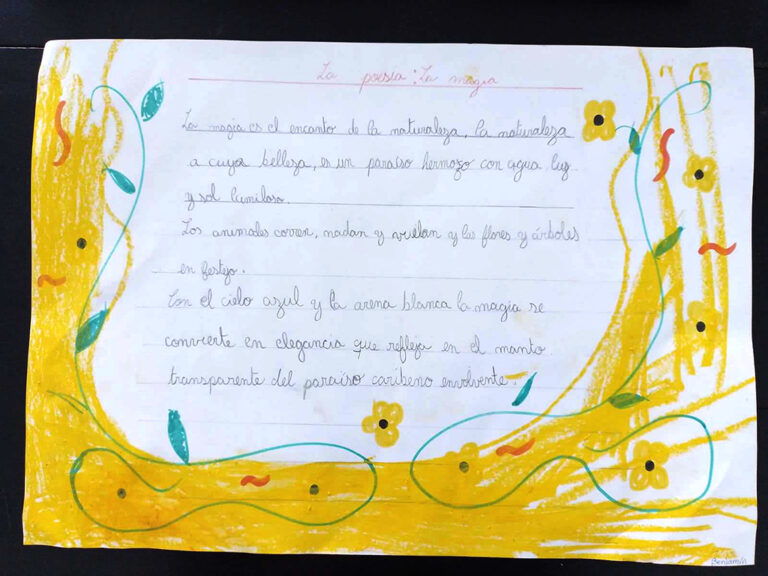 La poesía: La magia
La magia es el encanto de la naturaleza, la naturaleza
a cuya belleza, es un paraíso hermozo con agua luz
y sol lumiloso.
Los animales corren, nadan y vuelan y las flores y árboles
en festejo.
Con el cielo azul y la arena blanca la magia se
convierte en elegancia que refleja en el manto
transparente del paraiso caribeno envolvente.
Benjamín